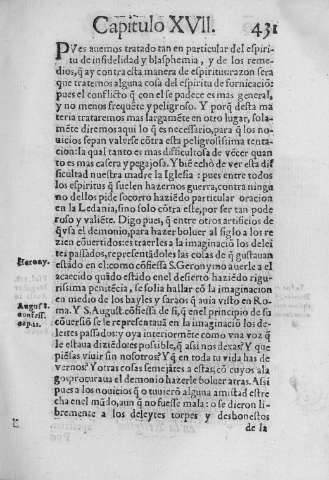 Capitulo XVII. 431
PVes auemos tratado tan en particular del espiri-
tu de infidelidad y blasphemia, y de los reme-
dios, q̃ ay contra esta manera de espiritus: razon sera
que tratemos alguna cosa del espiritu de fornicació:
pues el conflicto q̃ con el se padece es mas general,
y no menos frequẽte y peligroso. Y porq̃ desta ma
teria trataremos mas largamẽte en otro lugar, sola-
mẽte diremos aqui lo q̃ es necessario, para q̃ los no-
uicios sepan valerse cõtra esta peligrosissima tenta-
cion: la qual tanto es mas dificultosa de vẽcer quan
to es mas casera y pegajosa. Y biẽ echó de ver esta di
ficultad nuestra madre la Iglesia: pues entre todos
los espiritus q̃ suelen hazernos guerra, contra ningu
no dellos pide socorro haziẽdo particular oracion
en la Ledania, sino solo cõtra este, por ser tan pode
roso y valiẽte. Digo pues, q̃ entre otros artificios de
q̃ vsa el demonio, para hazer boluer al siglo a los re
zien cõuertidos: es traerles a la imaginació los delei
tes passados, representãdoles las cosas de q̃ gustauan
Hierony. estãdo en el: como cõfiessa S. Geronymo auerle a el
acaecido quãdo estãdo en el desierto haziẽdo rigu-
rissima penitẽcia, se solia hallar cõ la imaginacion
en medio de los bayles y saraos q̃ auia visto en Ro-
August. ma. Y S. August. cõfiessa de si, q̃ en el principio de su
confess. cõuersiõ se le representauã en la imaginació los de-
leites passados: y oya interiormẽte como vna voz q̃
le estaua diziẽdo: es possible, q̃ assi nos dexas? Y que
piẽsas viuir sin nosotros? Y q̃ en toda tu vida has de
vernos? Y otras cosas semejãtes a estas, cõ cuyos ala
gos procuraua el demonio hazerle boluer atras. Assi
pues a los nouicios q̃ tuuierõ alguna amistad estre
cha en el mũdo, aun q̃ no fuesse mala: o se dieron li-
bremente a los deleytes torpes y desbonestos
de la